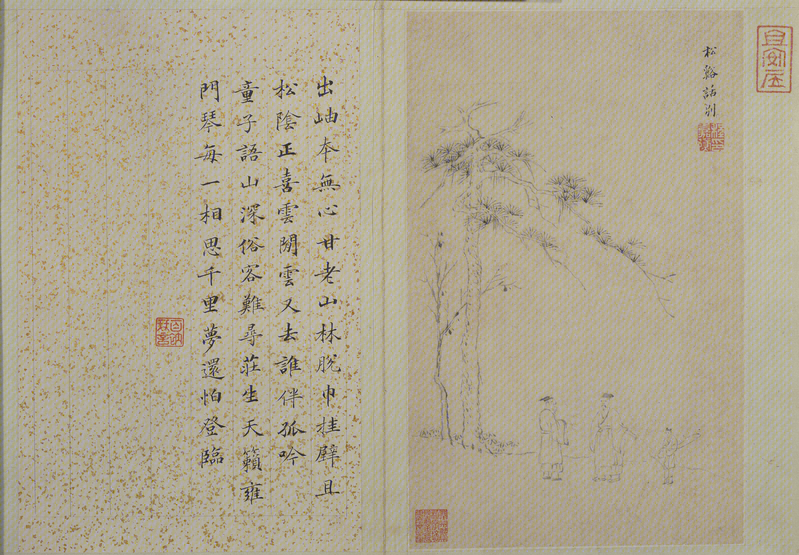 松谿話別
出岫本無心甘老山林脫巾挂壁且
松陰正喜雲閒雲又去誰伴孤吟
童子語山深俗客難尋莊生天籟雍
門琴每一相思千里夢還怕登臨